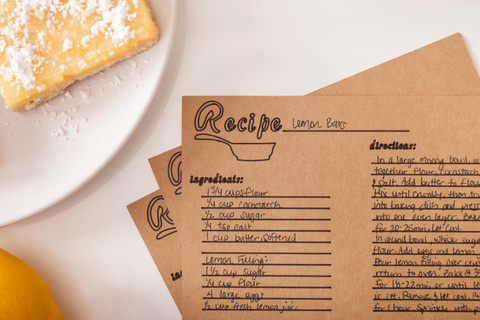 Recipe Lemon Bars
ingredients:
1 3/4 cups flour
1/4 cup cornstarch
1/2 cup sugar
1/4 tsp salt
1 cup butter, softened
Lemon Filling:
1 1/2 cup sugar
1/4 cup flour
4 large eggs
1/2 cup fresh lemon juice
directions:
In a large mixing bowl, w
together flour, cornstarch
& salt. Add butter to flour
Mix until crumbly, then
into baking dish and press
into one even layer. Bake
for 20-25min. Let cool.
In a small bowl, whisk sugar
flour. Add eggs and lemon
Pour lemon filling over
return to oven. Bake @
for 18-22min or until le
is set. Remove & let cool.
for 1 hour. Sprinkle with p
R
R
i